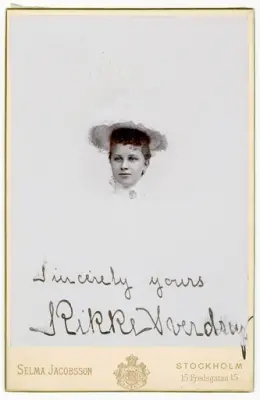 Sincerely yours
Rikke Sverdrup
SELMA JACOBSSON
STOCKHOLM
15 Fredsgatan 15